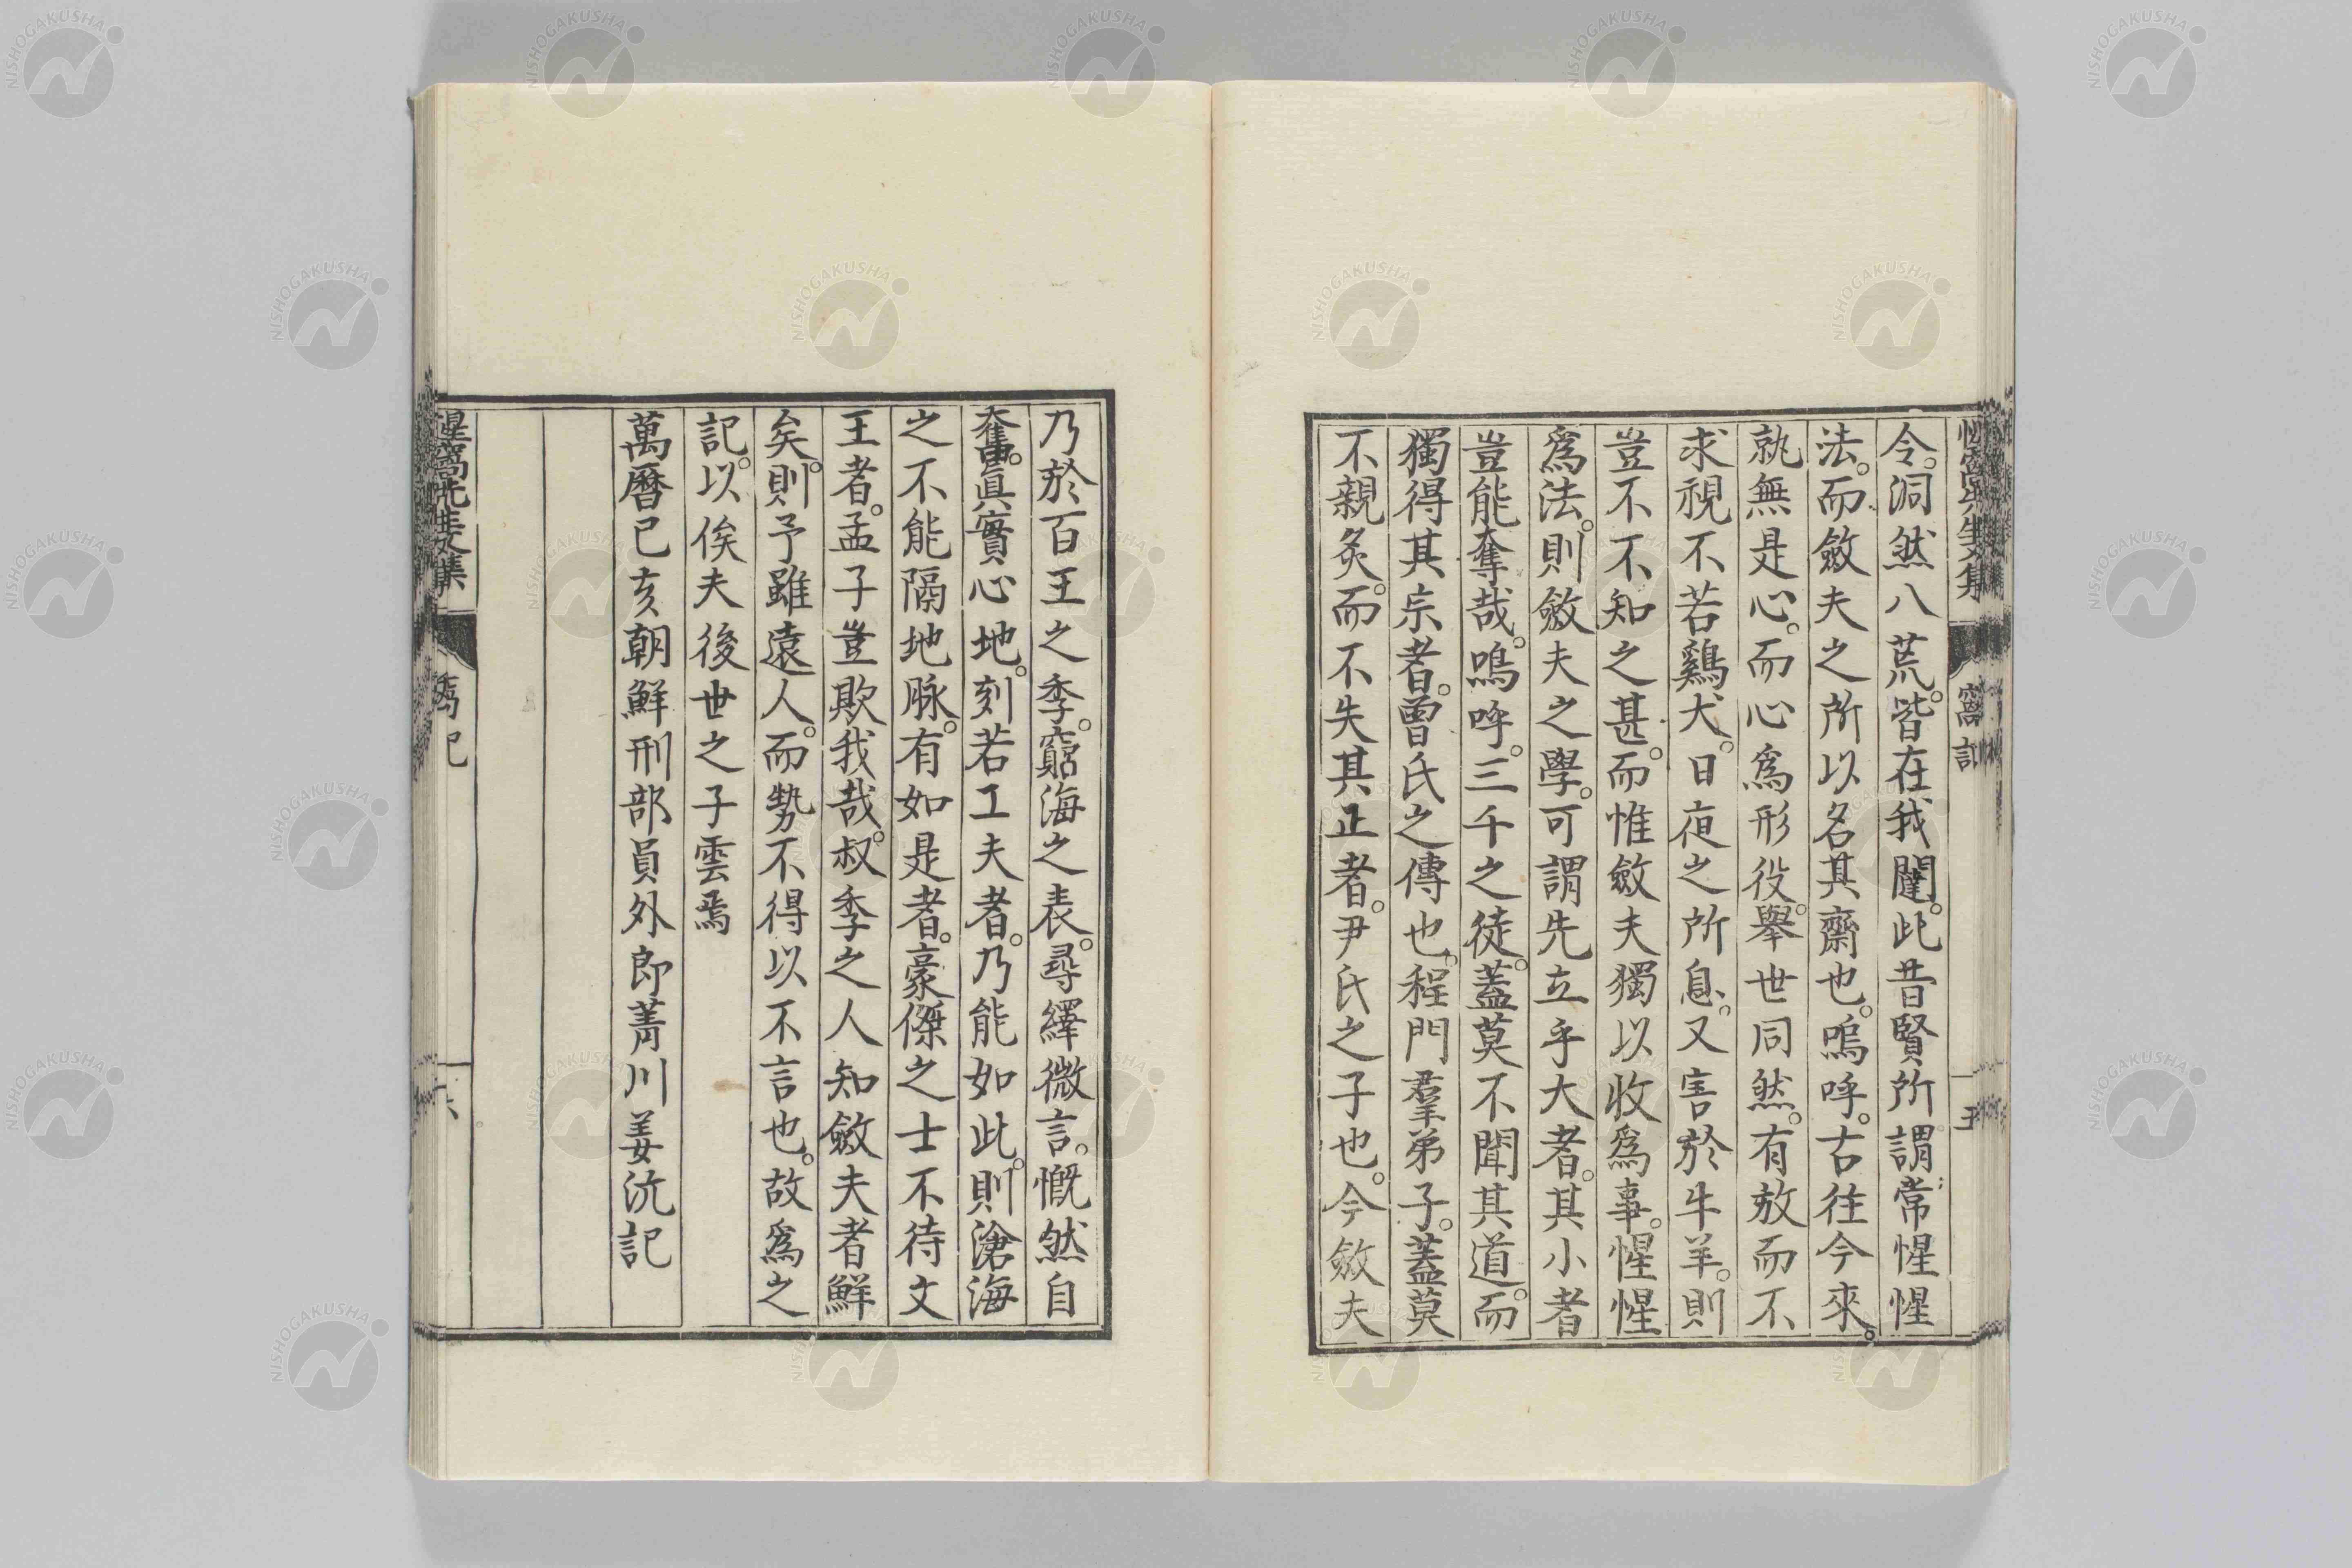 惺窩先生文集 窩記 五
令。洞然八荒。皆在我闥。此昔賢所謂常惺惺
法。而斂夫之所以名其齋也。嗚呼。古往今來。
孰無是心。而心爲形役。舉世同然。有放而不
求視不若鷄犬。日夜之所息。又害於牛羊。則
豈不不知之甚。而惟斂夫獨以收爲事。惺惺
爲法。則斂夫之學。可謂先立乎大者。其小者
豈能奪哉。嗚呼。三千之徒。蓋莫不聞其道。而
獨得其宗者。曾氏之傳也。程門羣弟子。蓋莫
不親炙。而不失其正者。尹氏之子也。今斂夫
乃於百王之季。窮海之表。尋繹微言。慨然自
奮。眞實心地。刻若工夫者。乃能如此。則滄海
之不能隔地脉。有如是者。豪傑之士不待文
王者。孟子豈欺我哉。叔季之人知斂夫者鮮
矣。則予雖遠人。而勢不得以不言也。故爲之
記。以俟夫後世之子雲焉
萬曆己亥朝鮮刑部員外郎菁川姜沆記
惺窩先生文集 窩記 六
NISHOGAKUSHA